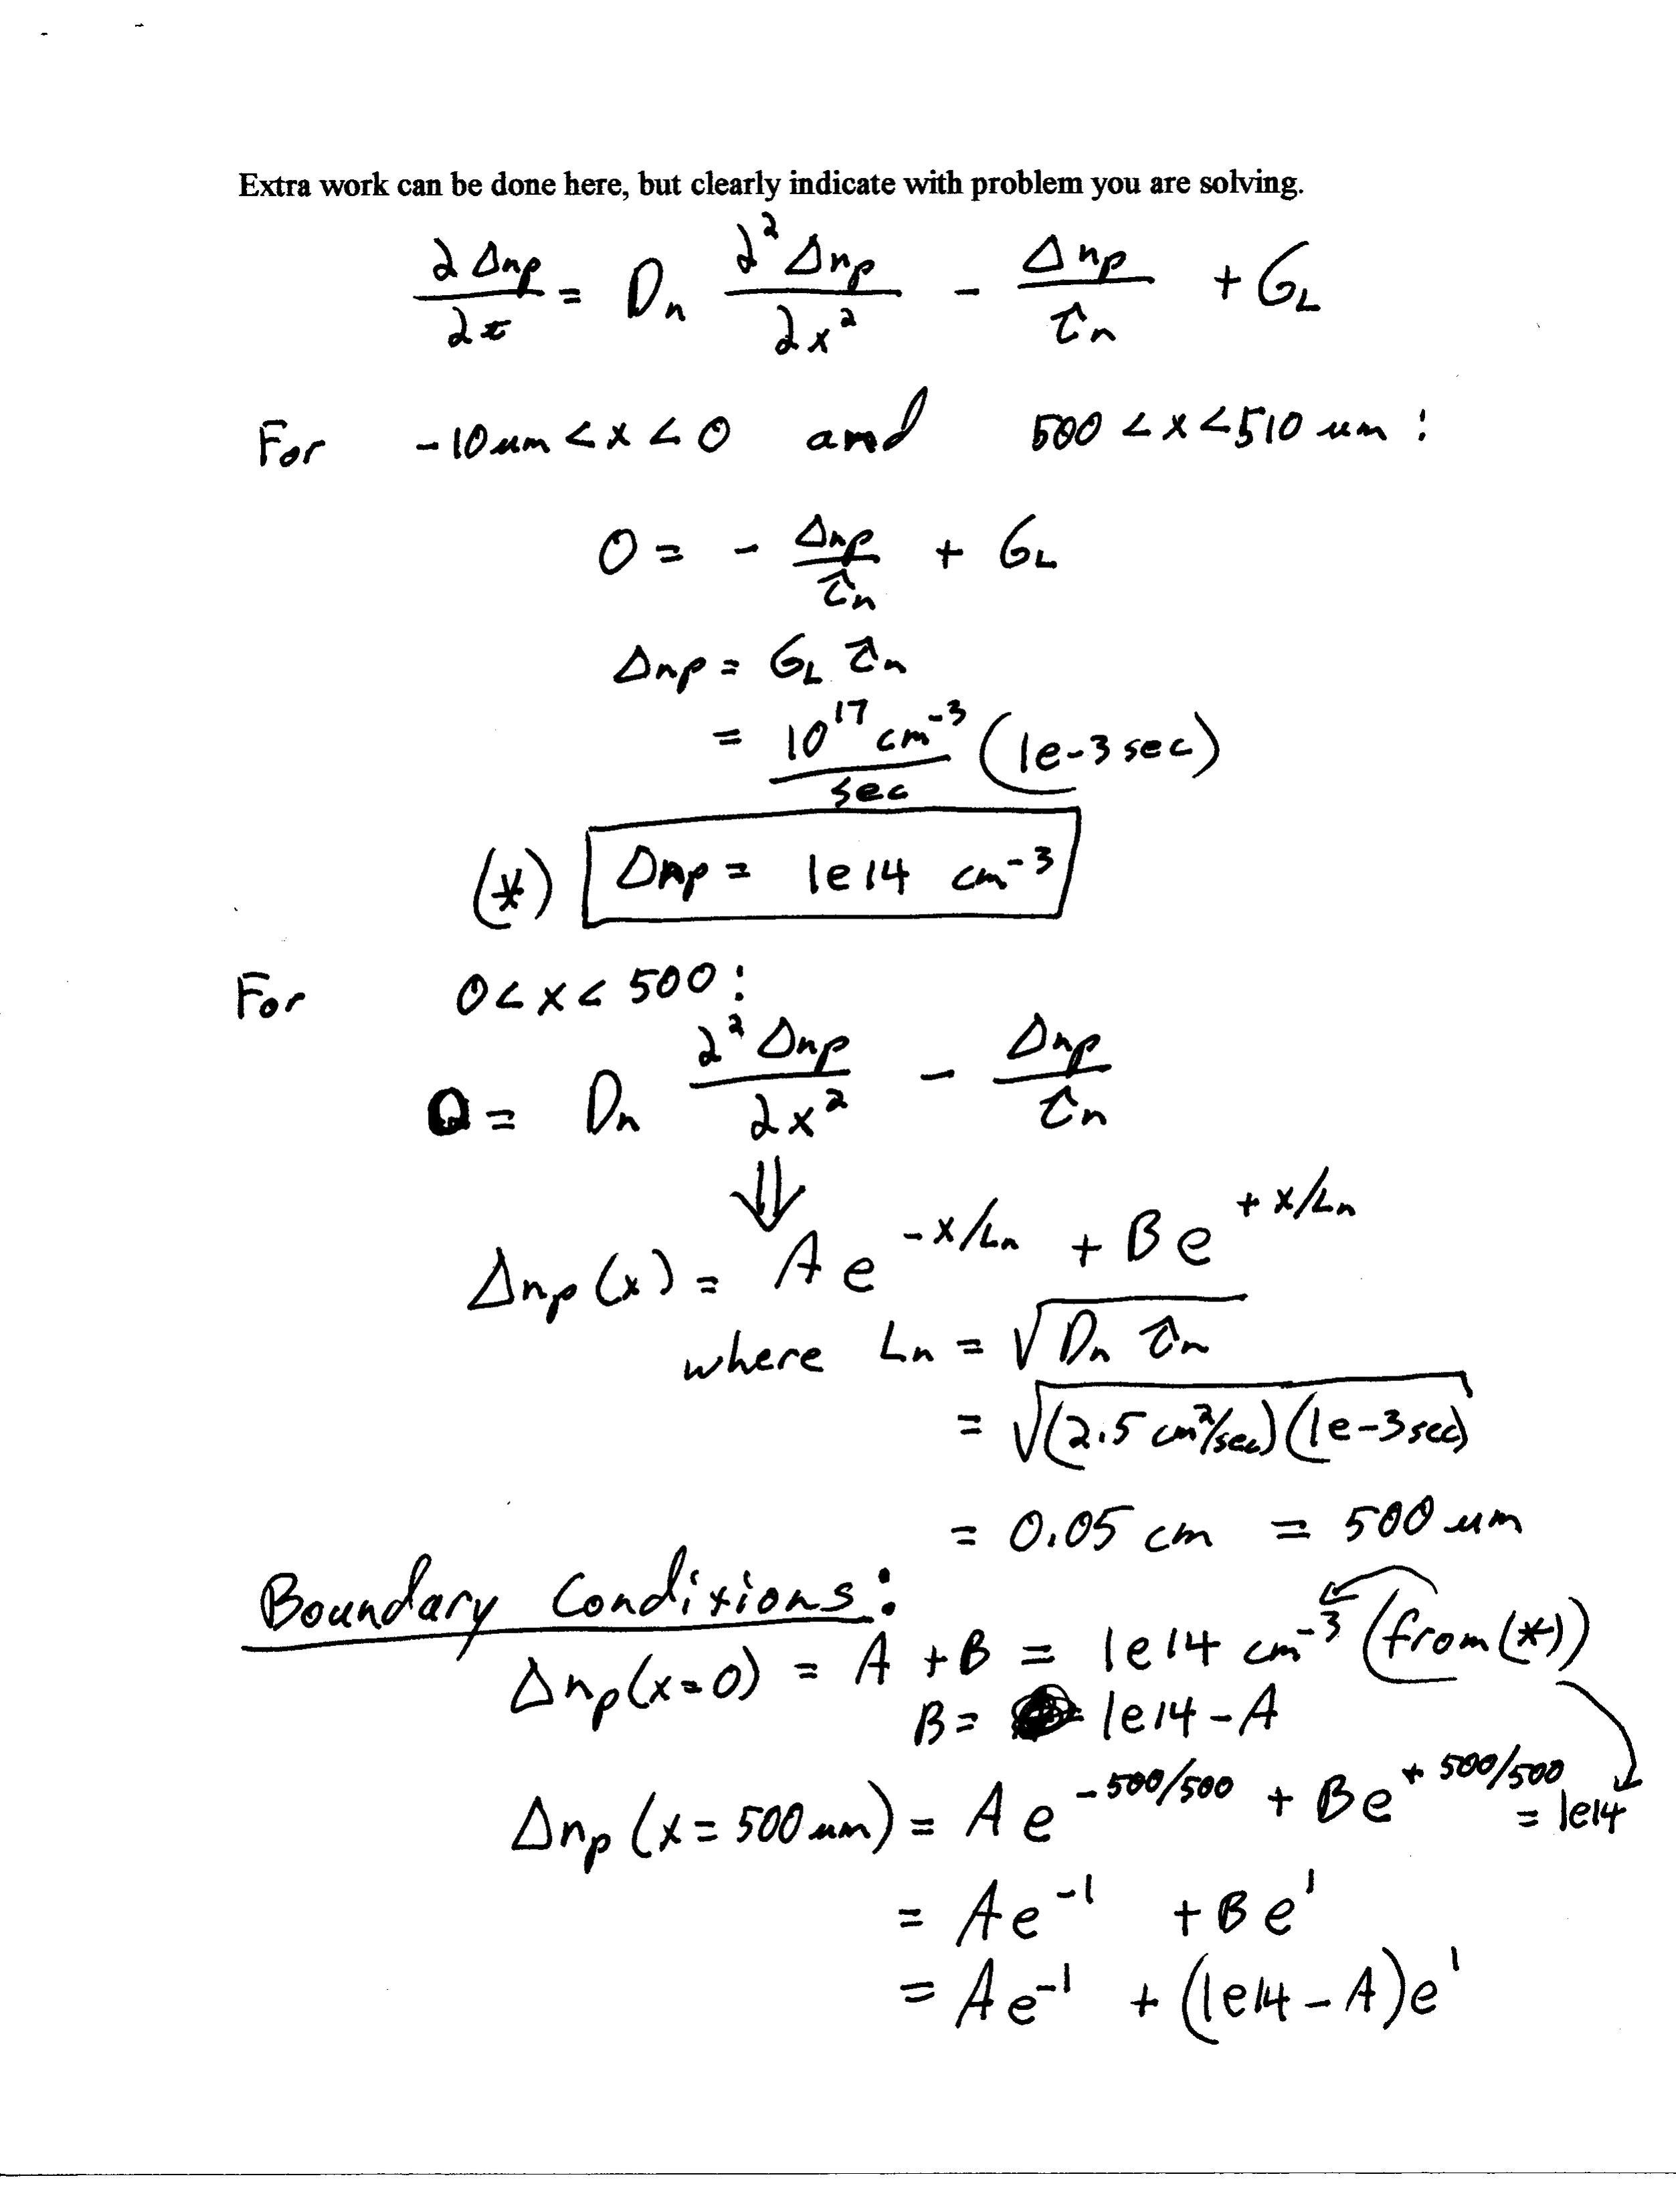 Extra work can be done here, but clearly indicate with problem you are solving.
∂Δnp/∂t = Dn ∂²Δnp/∂x² - Δnp/τn + GL
For -10um < x < 0 and 500 < x < 510 um :
0 = - Δnp/τn + GL
Δnp = GL τn
= 10^17 cm^-3/sec (1e-3 sec)
(*) Δnp = 1e14 cm^-3
For 0 < x < 500 :
0 = Dn ∂²Δnp/∂x² - Δnp/τn
⇓
Δnp(x) = A e^-x/Ln + B e^+x/Ln
where Ln = √Dn τn
= √(2.5 cm²/sec)(1e-3sec)
= 0.05 cm = 500 um
Boundary Conditions :
Δnp(x=0) = A + B = 1e14 cm^-3 (from(*))
B = 1e14 - A
Δnp(x = 500um) = A e^-500/500 + B e^+500/500 = 1e14
= A e^-1 + B e^1
= A e^-1 + (1e14 - A)e^1